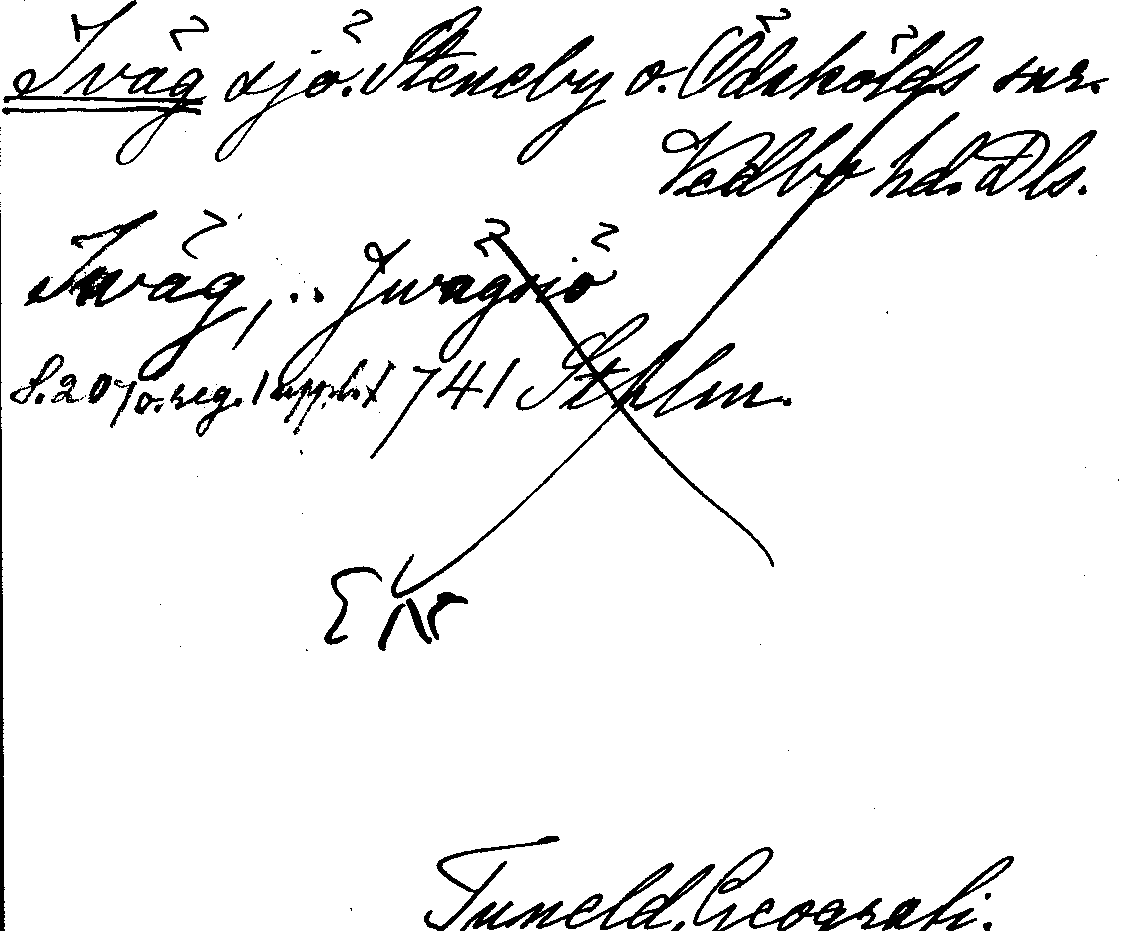 Iväg sjö. Steneby o. Ödskölds snr.
Vedbo hd. Dls.
Iwäg, .. Jwägsjö
S. 20 % o. reg. 1 uppl. 1741 Sthlm.
Tuneld, Geografi.